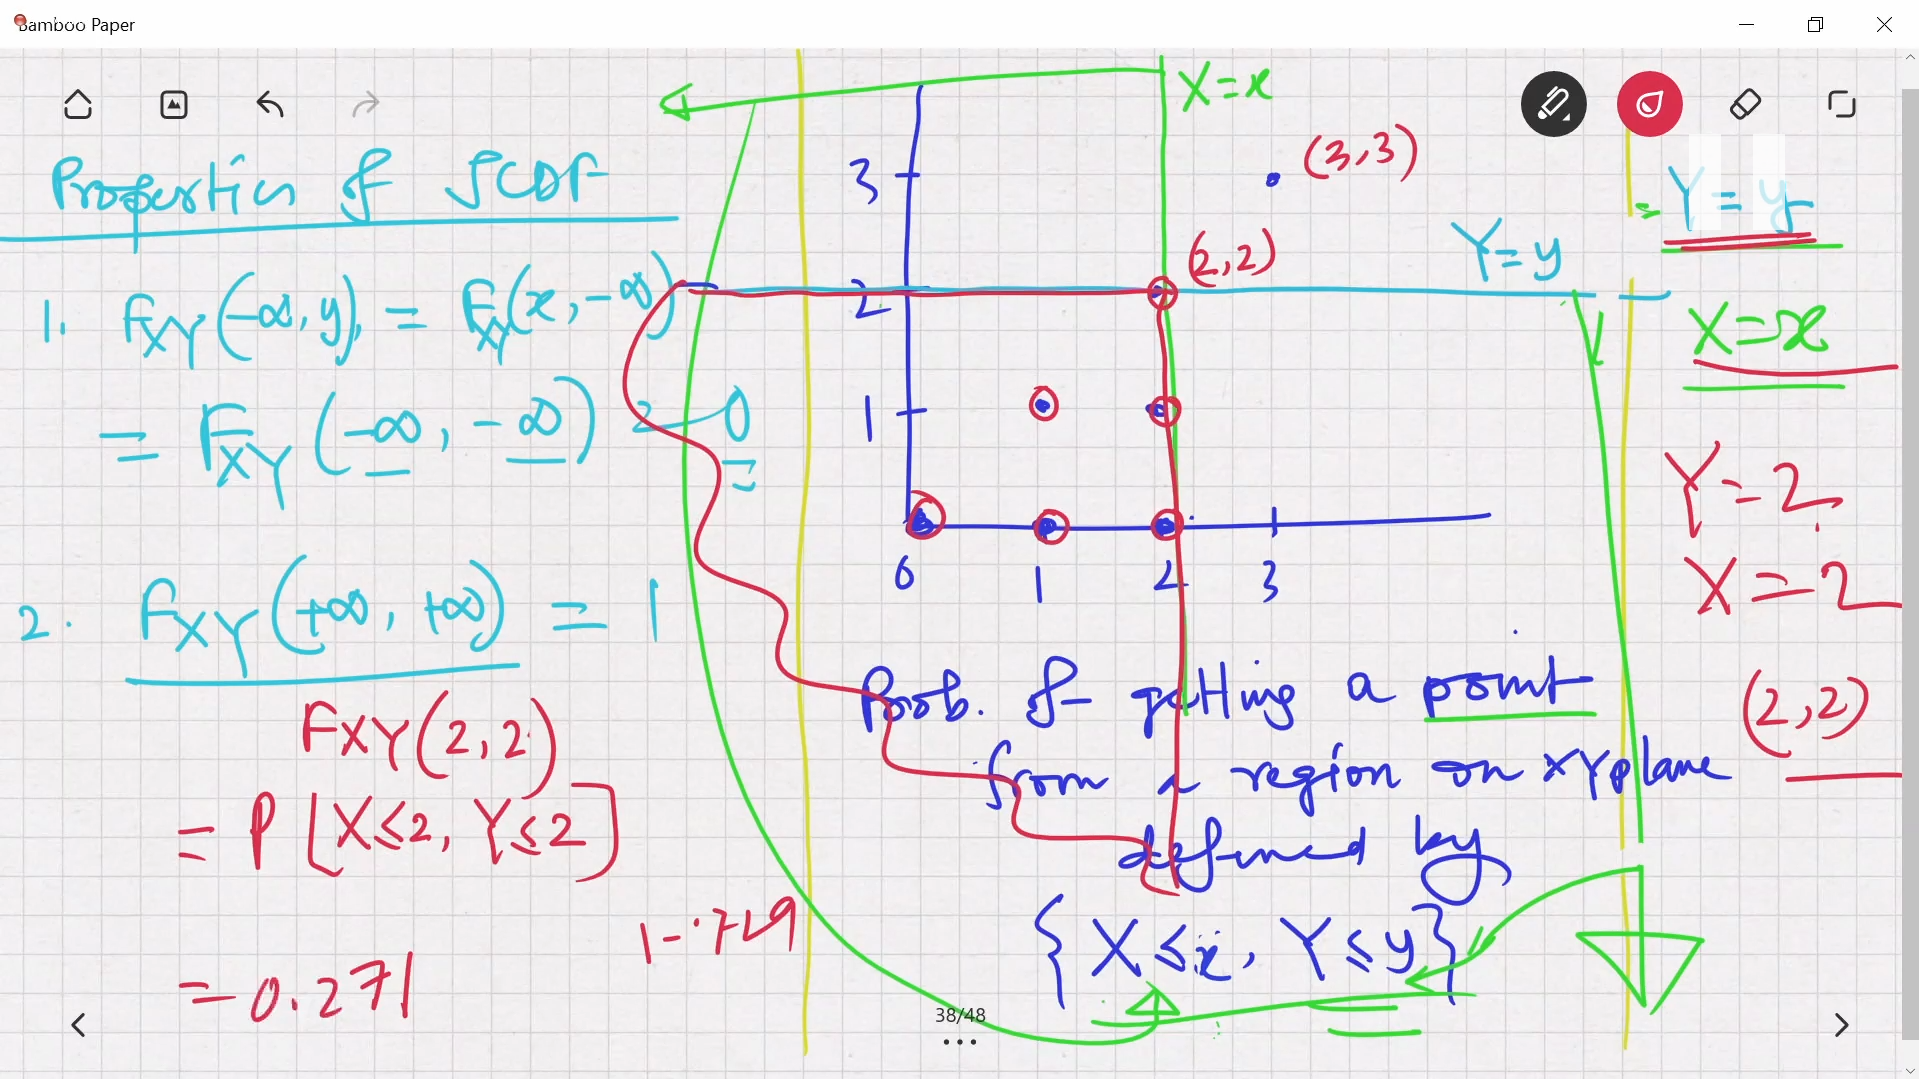 Bamboo Paper
Properties of JCDF
1. FXY(-∞, y) = FXY(x, -∞)
= FXY(-∞, -∞) = 0
2. FXY(+∞, +∞) = 1
FXY(2,2)
= P[X≤2, Y≤2]
1-.729
= 0.271
X=x
3
(3,3)
(2,2)
Y=y
2
1
0 1 2 3
Prob. of getting a point
from a region on XY plane
defined by
{X≤x, Y≤y}
Y=y
X=x
Y=2
X=2
(2,2)
38/48